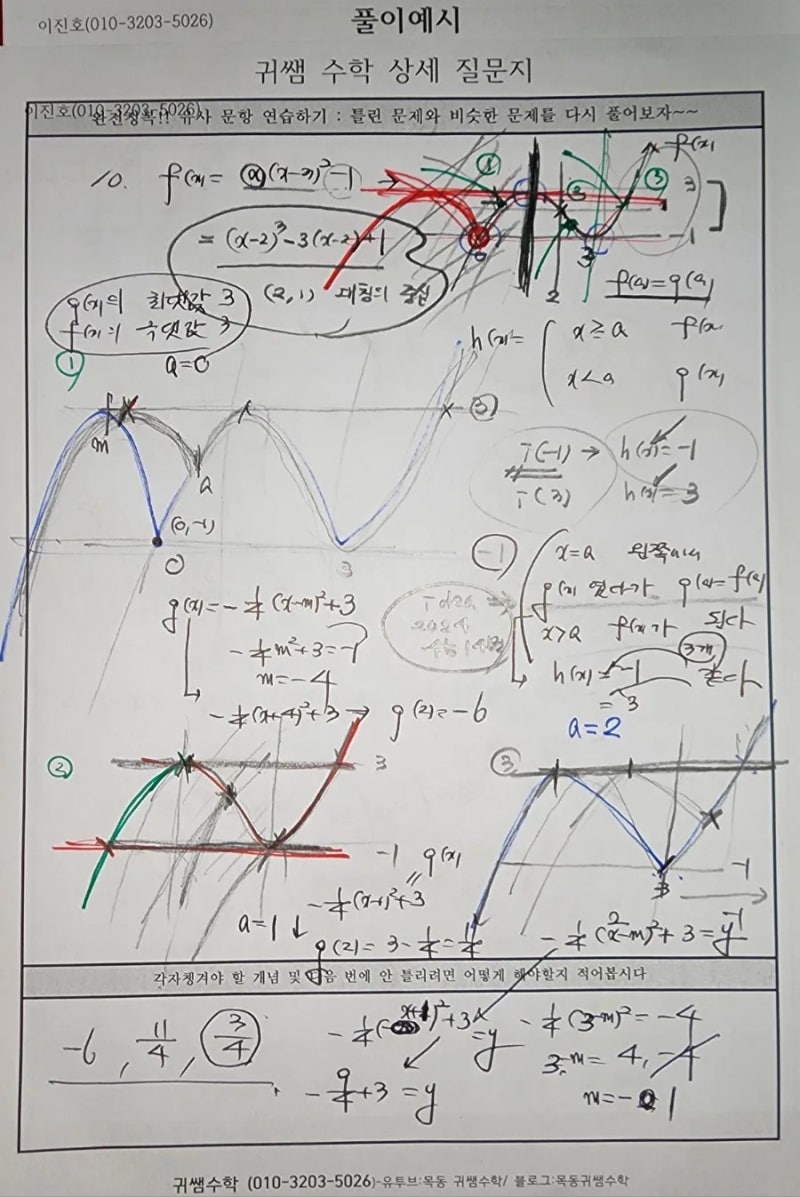 이진호(010-3203-5026)
풀이예시
귀쌤 수학 상세 질문지
이진호(010-3203-5026)
완전정복!! 유사 문항 연습하기 : 틀린 문제와 비슷한 문제를 다시 풀어보자~~
10. f(x)=
f(x)
① ② ③
3
-1
0 2 3
= (x-2)³-3(x-2)+1
(2,1) 대칭의 중심
f(a)=g(a)
g(x)의 최댓값 3
f(x)의 극댓값 3
h(x)= x≥a f(x)
x<a g(x)
① a=0
m
a
(0,-1)
0
3
③
T(-1) → h(x)=-1
T(3) h(x)=3
-1
x=a 왼쪽에서
g(x) 였다가 g(a)=f(a)
x>a f(x)가 된다
3개
h(x)=-1 같다
=3
2024
g(x)=-¼(x-m)²+3
-¼m²+3=-1
m=-4
-¼(x+4)²+3 → g(2)=-6
a=2
②
3
-1
g(x)
-¼(x+1)²+3
a=1 ↓
g(2)=3-¼=11/4
③
3
-1
-¼(x-m)²+3=y
2
-1
각자챙겨야 할 개념 및 다음 번에 안 틀리려면 어떻게 해야할지 적어봅시다
-6, 11/4, 3/4
-¼(x+1)²+3=y
-9/4+3=y
-¼(3-m)²=-4
3-m=4,-4
m=-1
귀쌤수학 (010-3203-5026)-유투브:목동 귀쌤수학/ 블로그:목동귀쌤수학